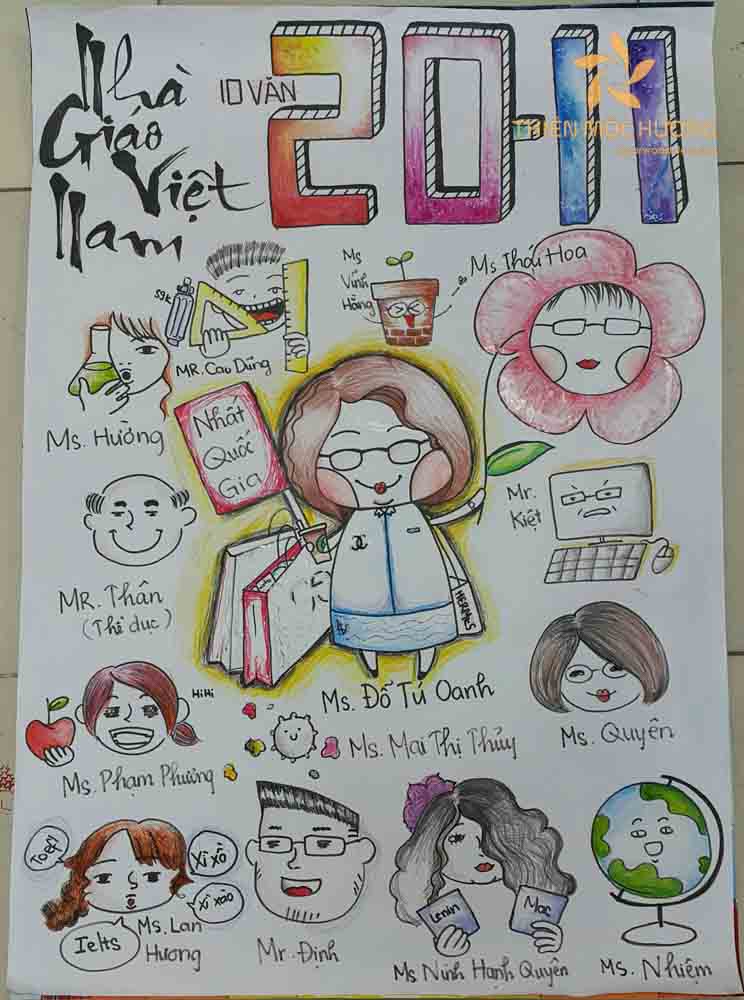 Nhà
Giáo
Việt
Nam
10 VĂN
20-11
THIÊN MỘC HƯƠNG
59k
MR. Cao Dũng
Ms
Vinh
Hằng
Ms Thái Hoa
Ms. Hường
Nhất
Quốc
Gia
Mr.
Kiệt
MR. Thân
(Thể dục)
HERMES
Ms. Đỗ Tú Oanh
HiHi
Ms. Phạm Phương
Ms. Mai Thị Thủy
Ms. Quyên
Xì xồ
Xì xào
Ielts
Ms. Lan
Hương
Mr. Định
Lenin
Mac
Ms Ninh Hạnh Quyên
Ms. Nhiệm